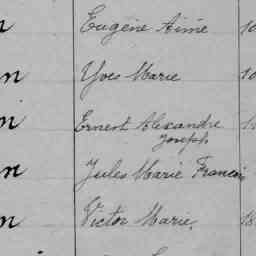 Eugène Aimé 10
Yves Marie 10
Ernest Alexandre
Joseph
Jules Marie Francis
Victor Marie. 18